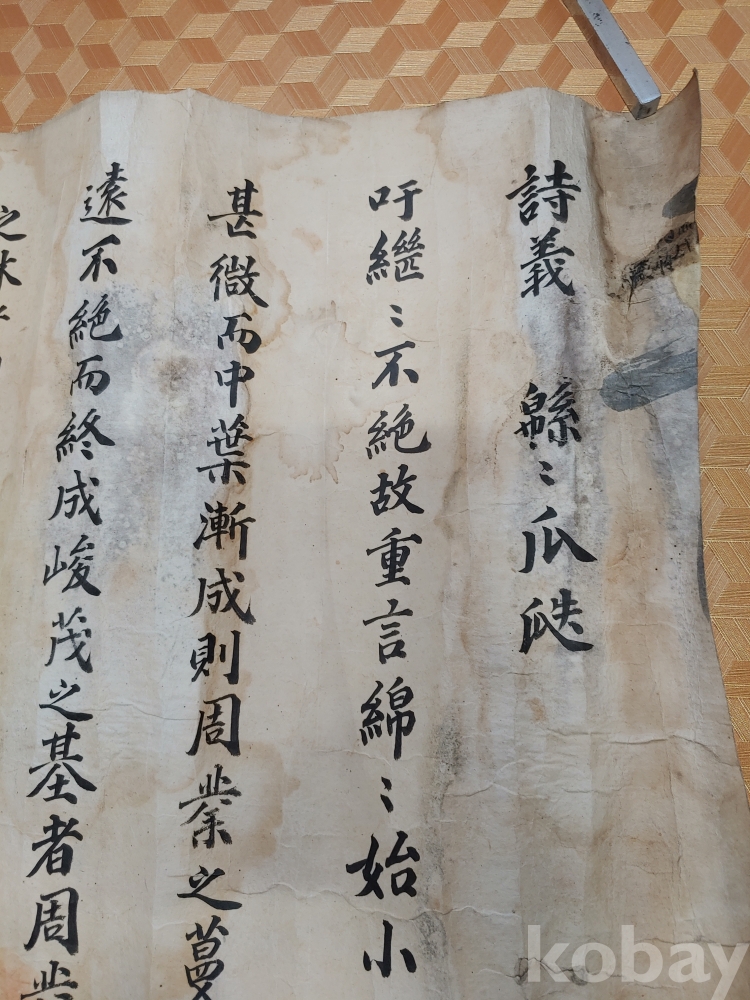 詩義 緜〻瓜瓞
吁繼〻不絶故重言綿〻始小
甚微而中葉漸成則周業之蔓
遠不絶而終成峻茂之基者周業
之
kobay